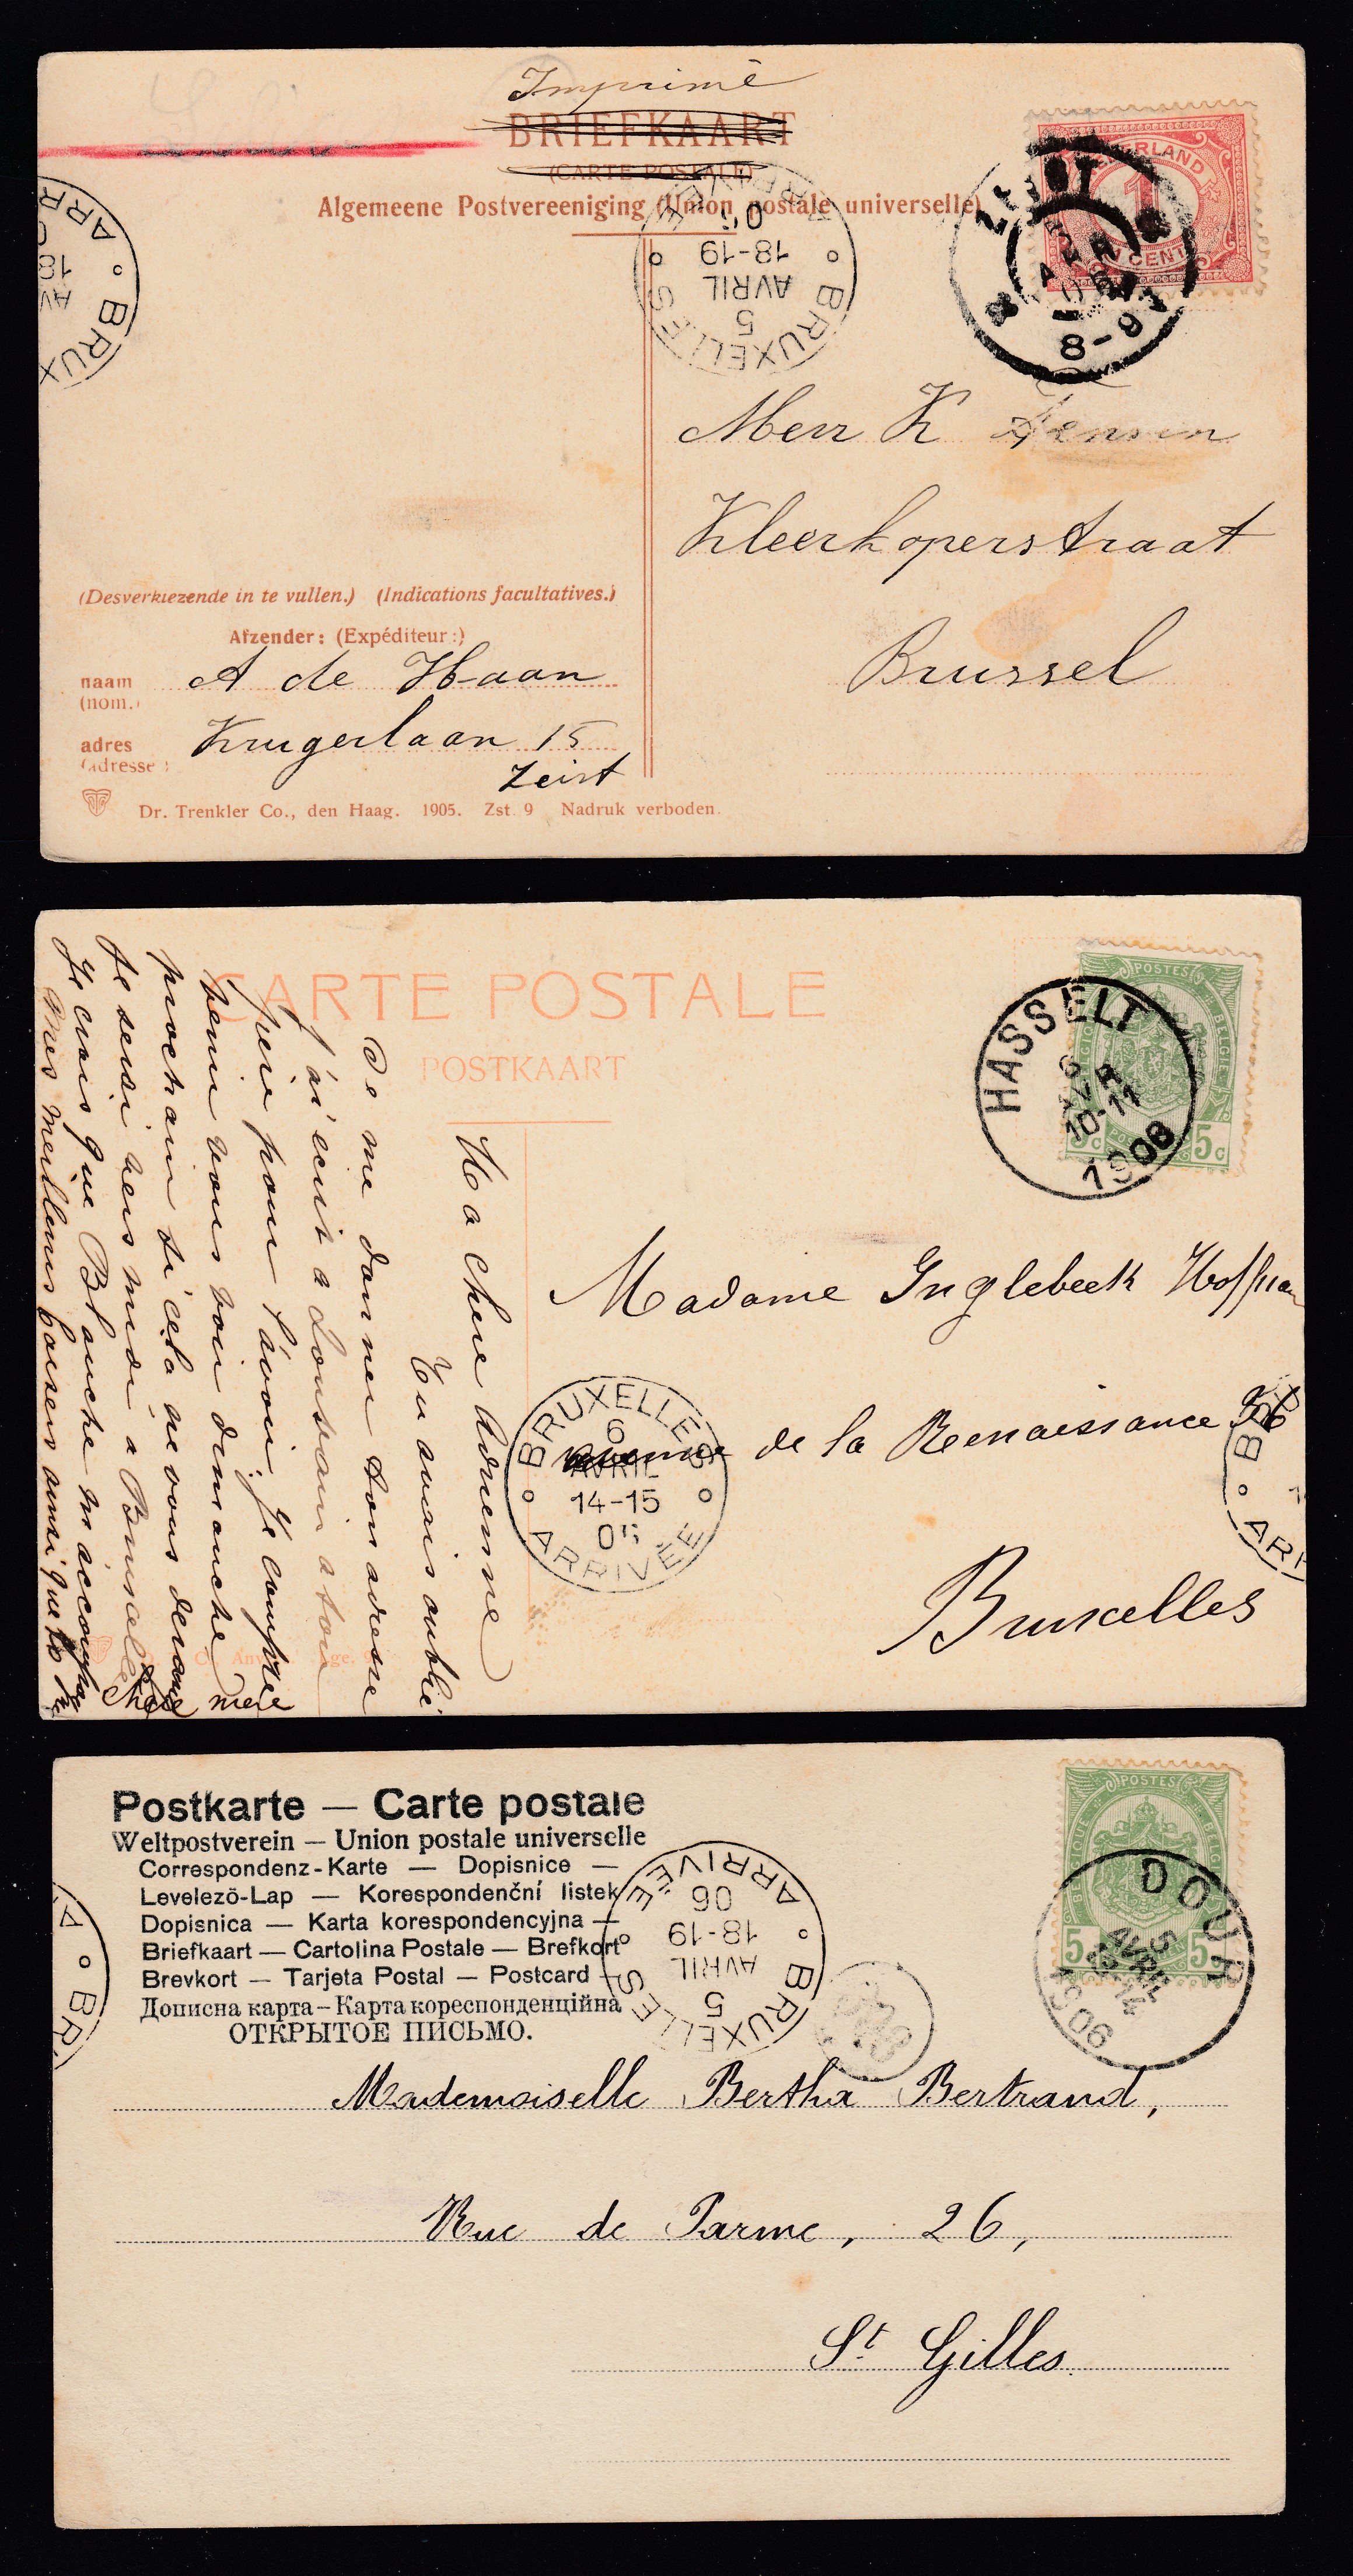 Imprimé
BRIEFKAART
(CARTE POSTALE)
Algemeene Postvereeniging (Union postale universelle)
NEDERLAND
1
CENT
ZEIST
APR
06
8-9
BRUXELLES
5
AVRIL
18-19
ARR
BRUX
Mhenr K
Kleerkoperstraat
Brussel
(Desverkiezende in te vullen.) (Indications facultatives.)
Afzender: (Expéditeur:)
naam A de Haan
(nom.)
adres Krugerlaan 15
(adresse)
Zeist
Dr. Trenkler Co., den Haag. 1905. Zst. 9 Nadruk verboden.
CARTE POSTALE
POSTKAART
POSTES
BELGIQUE BELGIE
5c 5c
HASSELT
6
AVR
10-11
1906
Ma chere Adrienne
Tu avais oublié
de me donner ton adresse
j'ai écrit a Louvain a ton
pere pour l'avoir. Je compte
venir vous voir dimanche
prochain si cela ne vous derange
Je serai vers midi a Bruxelles
Je crois que Blanche m'accompa
Mes meilleurs baisers ainsi que to
chere mere
Madame Inglebeek
avenue de la Renaissance 36
Bruxelles
BRUXELLES
6
AVRIL
14-15
06
ARRIVÉE
BR
ARR
Postkarte — Carte postale
Weltpostverein — Union postale universelle
Correspondenz-Karte — Dopisnice —
Levelezö-Lap — Korespondenční listek
Dopisnica — Karta korespondencyjna —
Briefkaart — Cartolina Postale — Brefkort
Brevkort — Tarjeta Postal — Postcard —
Дописна карта — Карта кореспонденційна
ОТКРЫТОЕ ПИСЬМО.
POSTES
BELGIQUE BELGIE
5 5
DOUR
5
AVRIL
13-14
1906
BRUXELLES
5
AVRIL
18-19
06
ARRIVÉE
A
BR
Mademoiselle Bertha Bertrand,
Rue de Parme, 26,
St. Gilles.